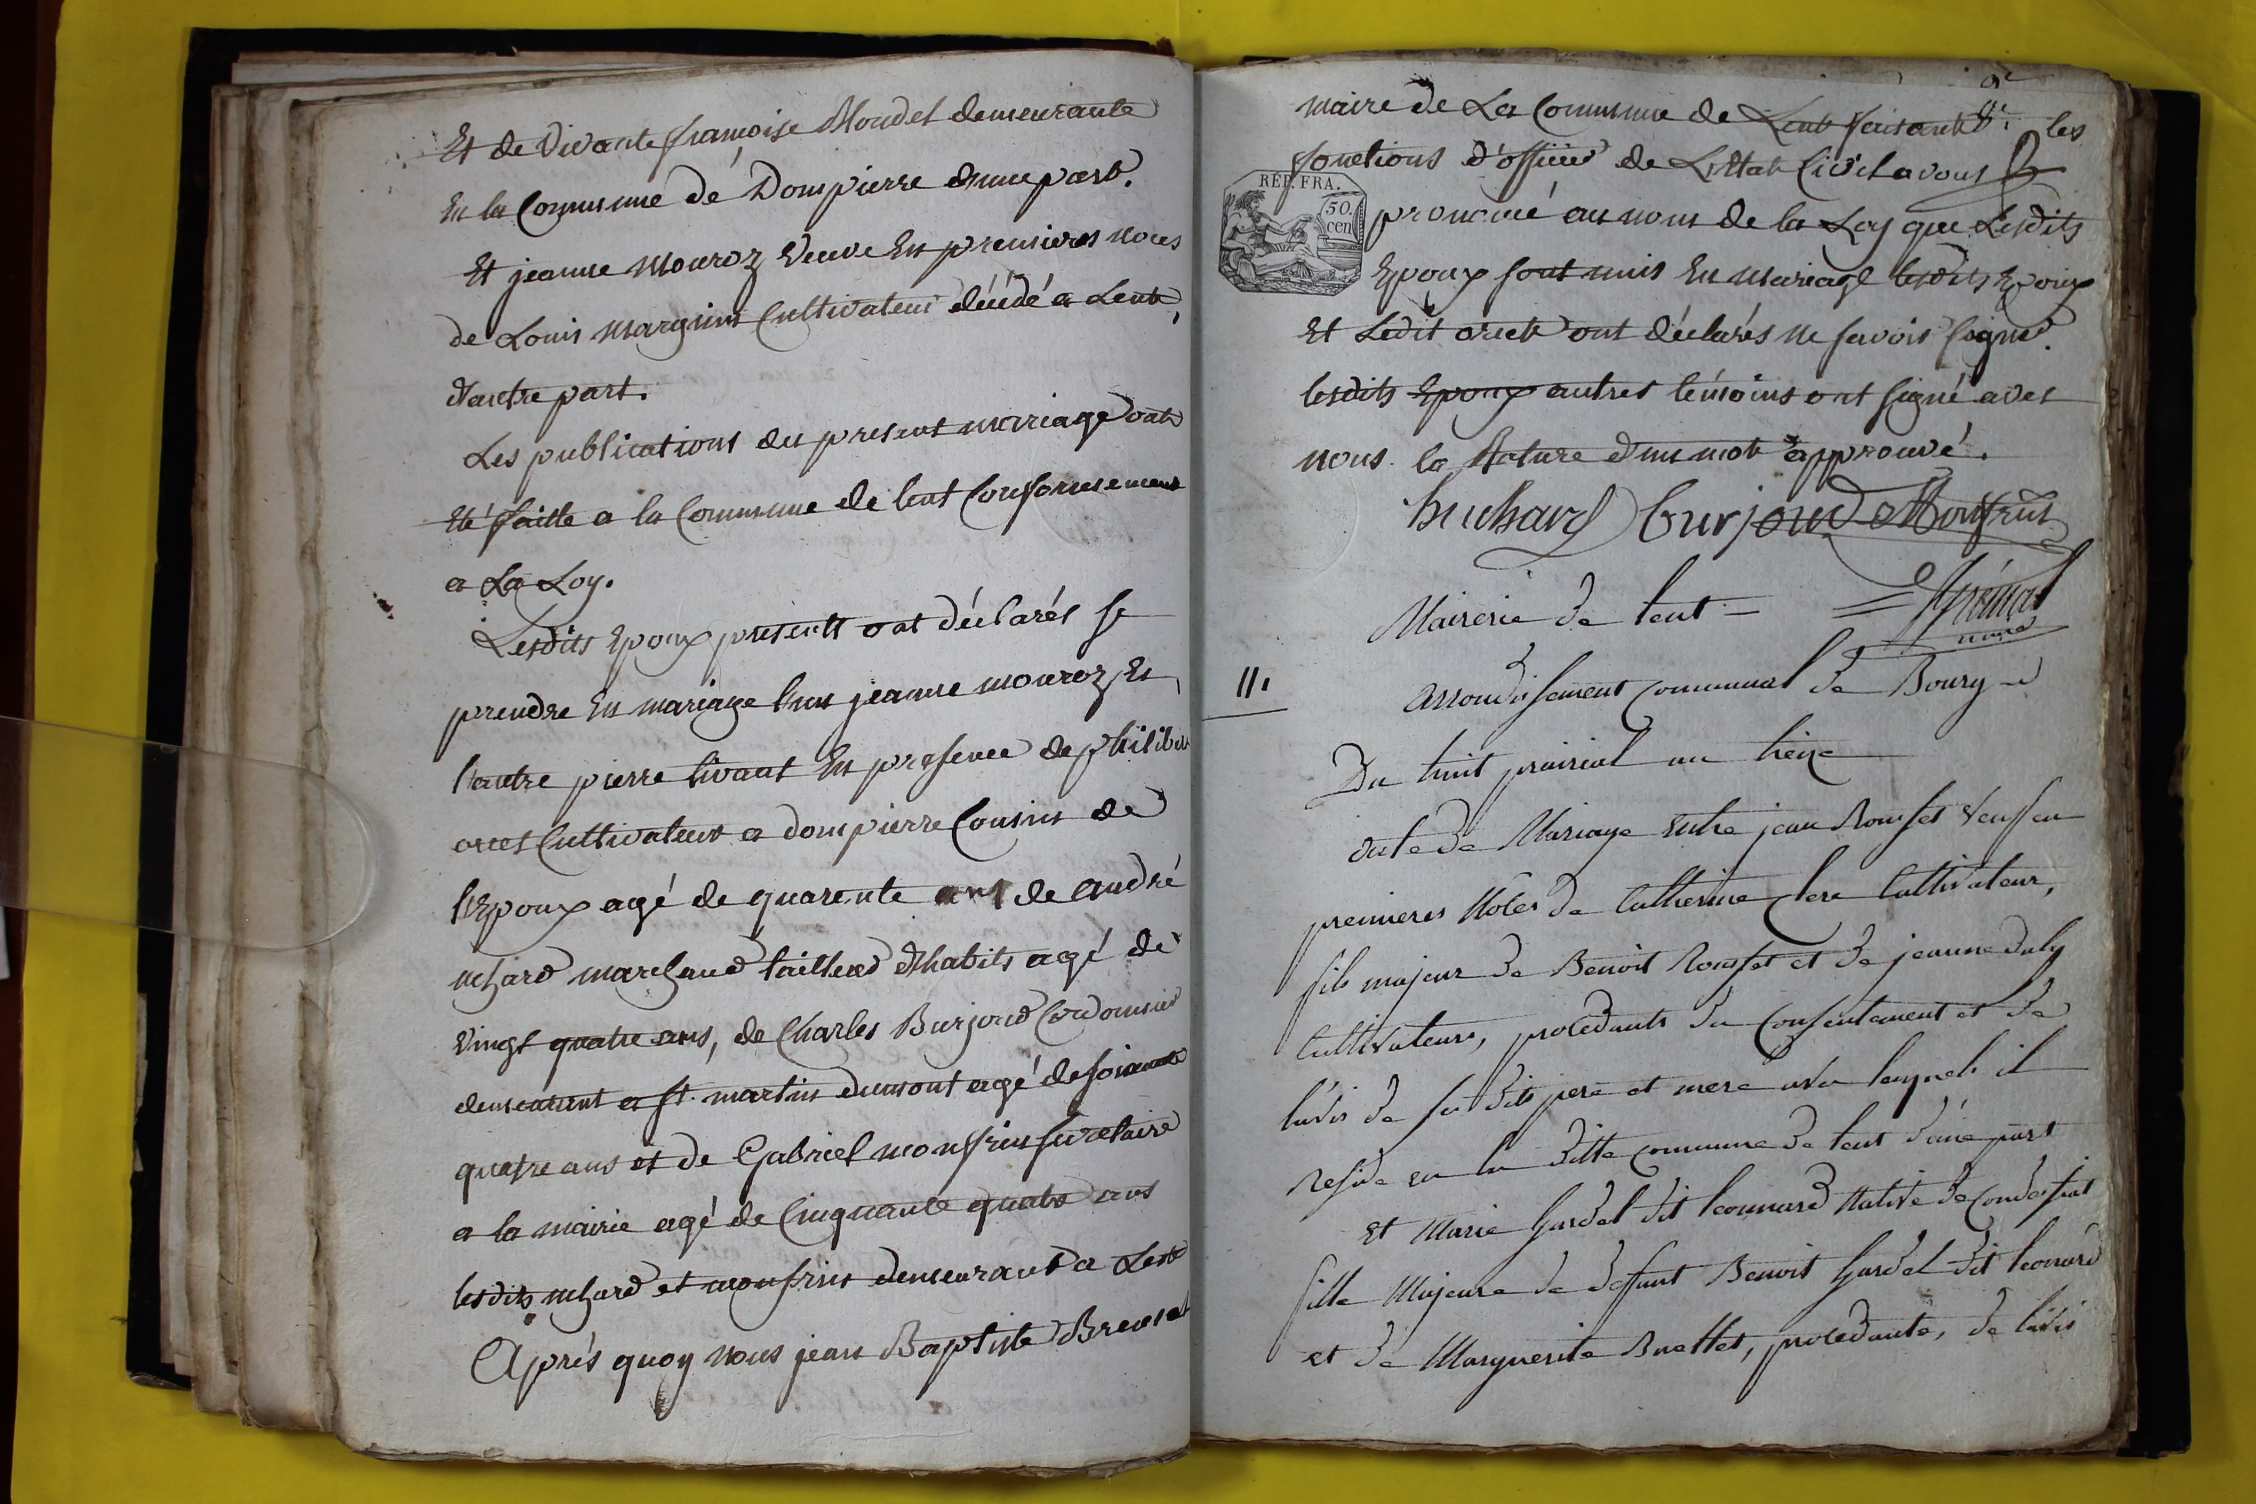 Et de vivante françoise Moudet demeurante
En la Commune de Dompierre d'une part.
Et jeanne Mouroz veuve En premieres noces
de Louis Marguin Cultivateur décédé a Lent,
d'autre part.
Les publications du present mariage ont
Eté faitte a la Commune de lent Conformement
a La Loy.
Lesdits Epoux presents ont déclarés se
prendre En mariage l'un jeanne mouroz, Et
l'autre pierre vivant En presence de philibert
Cultivateur a dompierre Cousin de
l'Epoux agé de quarente ans de André
marchand tailleur d'habits agé de
vingt quatre ans, de Charles Burjoud Cordonnier
demeurant a St. martin dumont agé de soixante
quatre ans et de Gabriel monfrin secretaire
a la mairie agé de Cinquante quatre ans
lesdits et monfrin demeurant a Lent
Après quoy nous jean Baptiste
9e
maire de La Commune de Lent faisant les
fonctions d'officier de L'Etat Civil avons
REP. FRA.
50. cen
prononcé au nom de la Loy que Lesdits
Epoux sont unis En mariage lesdits Epoux
Et Ledit ont déclarés ne savoir signer.
lesdits Epoux autres témoins ont signé avec
nous. la Rature d'un mot approuvé.
Burjoud Monfrin
Mairerie de lent
maire
11.
arrondissement communal de Bourg
Du huit prairial an treize
acte de Mariage entre jean Rousset veuf en
premieres Noces de Catherine Clere Cultivateur,
fils majeur de Benoit Rousset et de jeanne Duly
Cultivateurs, procedant du Consentement et de
l'avis de ses dits pere et mere avec lesquels il
reside en la ditte commune de lent d'une part
Et Marie Gardel dit leonnard Native de Condeissiat
fille Majeure de deffunt Benoit Gardel dit leonard
et de Marguerite Buellet, procedante, de l'avis